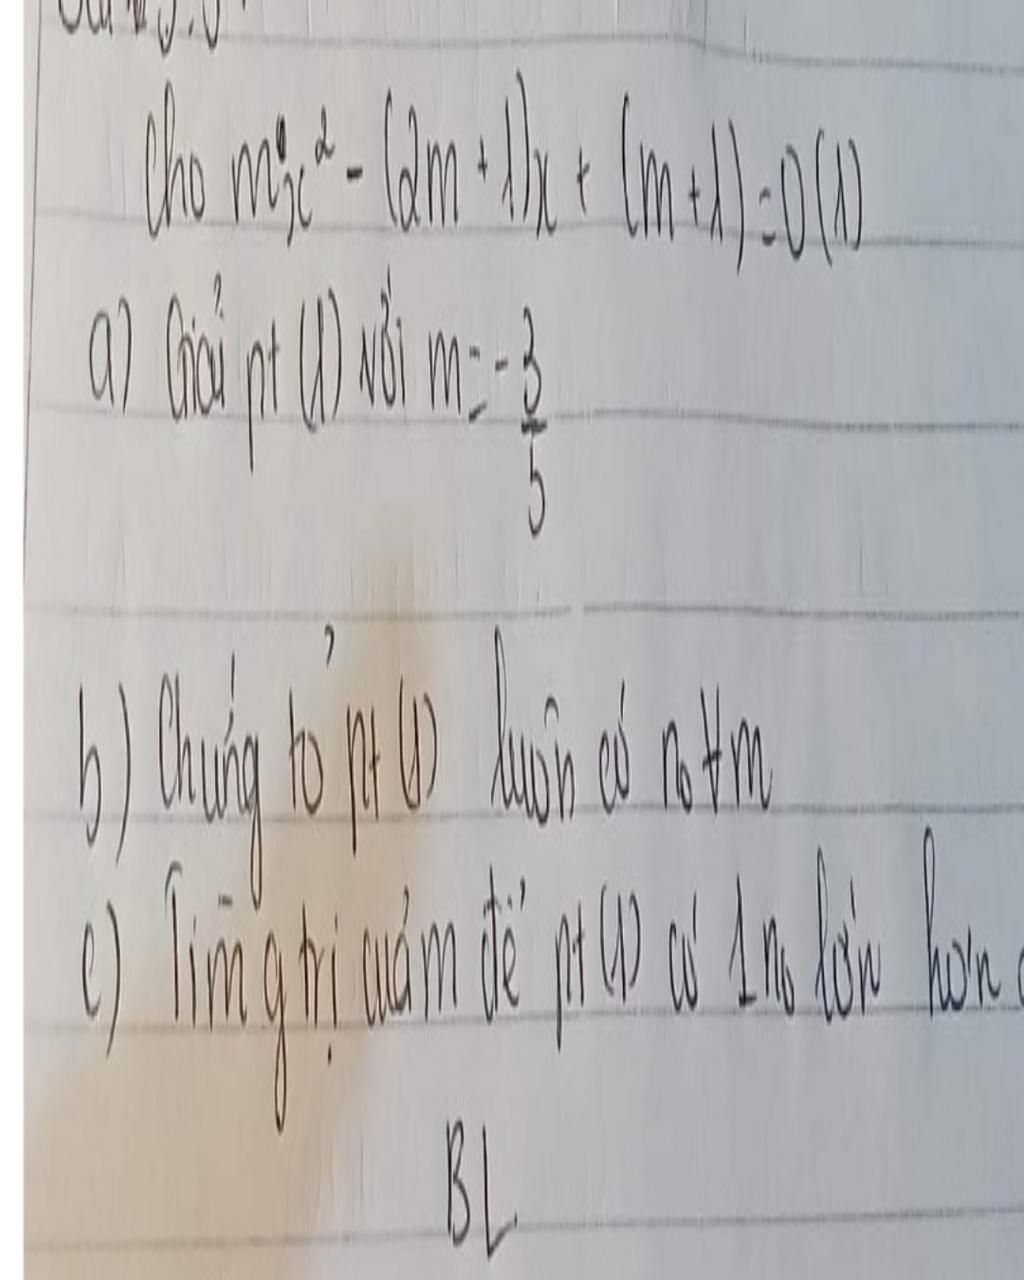 Cho mx² - (2m + 1)x + (m + 1) = 0 (1)
a) Giải pt (1) với m = - 3/5
b) Chứng tỏ pt (1) luôn có no ∀m
c) Tìm giá trị của m để pt (1) có 1 no lớn hơn
BL